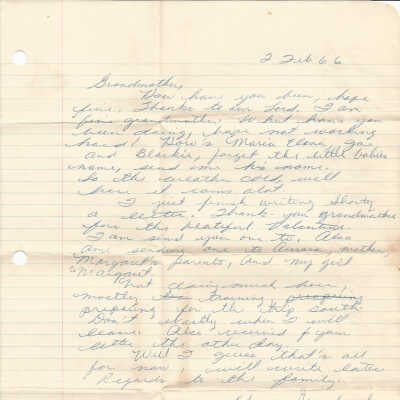 2 Feb 66
Grandmother,
How have you been, hope
fine. Thanks to our Lord. I am
fine grandmother. What have you
been doing, hope not working
hard! How's Maria Elena,
and Blackie, forget the little babies
name, send me his name.
Is the weather cold, well
here it rains alot.
I just finish writing Shorty
a letter. Thank-you grandmother
for the beatiful Valentine.
I am send you one to, Also
am sending one to mother,
Margaret's parents, and my girl
Margaret.
Not doing much here,
mostly training, preparing
preparing for the trip south.
Don't exactly when I will
leave. Also received your
letter the other day.
Well I guess that's all
for now, will write later
Regards to the family.